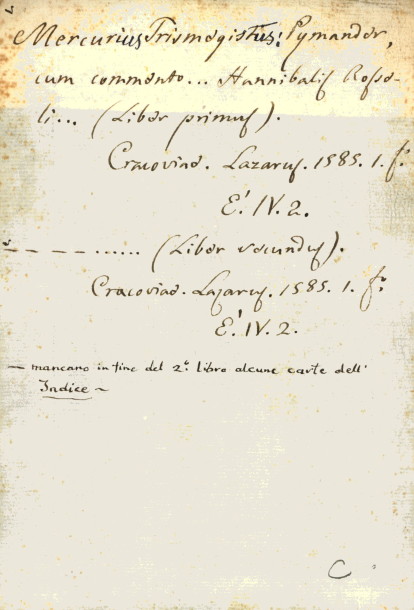 Mercurius Trismegistus: Pymander,
cum commento... Hannibalis Rosse-
li... (Liber primus).
Cracoviae. Lazarus. 1585. 1. fº.
É. IV. 2.
— — — — ...... (Liber secundus).
Cracoviae. Lazarus. 1585. 1. fº.
É. IV. 2.
— mancano in fine del 2º. libro alcune carte dell'
Indice ~
C